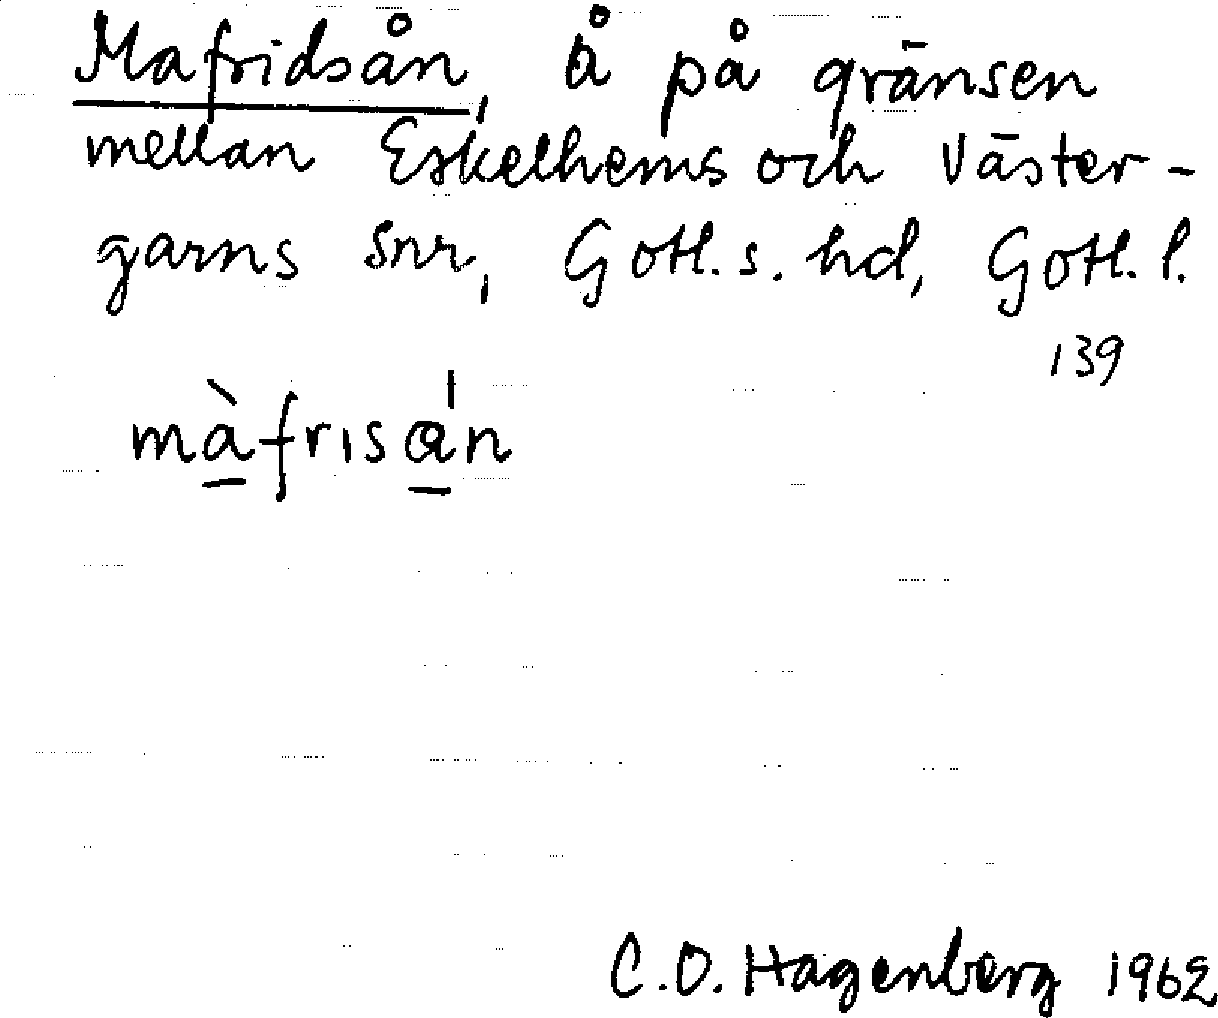 Mafridsån, å på gränsen
mellan Eskelhems och Väster-
garns snr, Gotl. s. hd, Gotl. l.
139
mà̱frisɑ̱́n
C.O. Hagenberg 1962